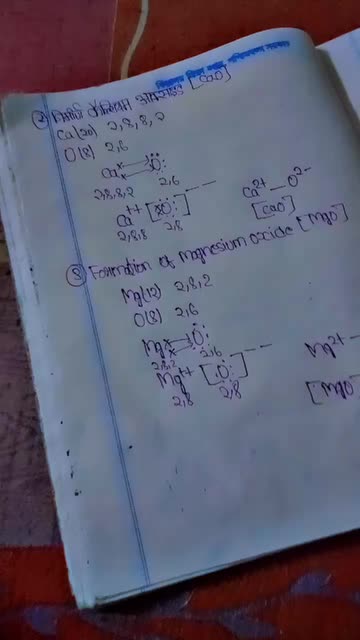 [CaO]
Ca(20) 2,8,8,2
O(8) 2,6
Ca O
2,8,8,2 2,6
Ca++ [O]-- Ca2+ — O2-
2,8,8 2,8 [CaO]
③ Formation of Magnesium oxide [MgO]
Mg(12) 2,8,2
O(8) 2,6
Mg O
2,8,2 2,6
Mg++ [O]-- Mg2+ -
2,8 2,8 [MgO